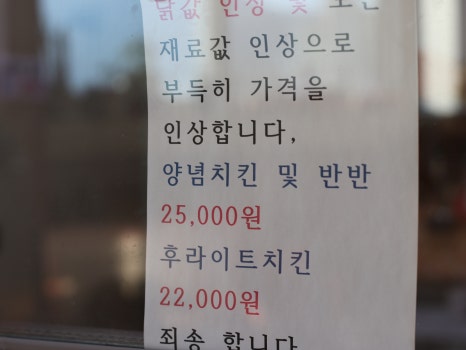 닭값 인상 및 모든
재료값 인상으로
부득히 가격을
인상합니다,
양념치킨 및 반반
25,000원
후라이트치킨
22,000원
죄송 합니다